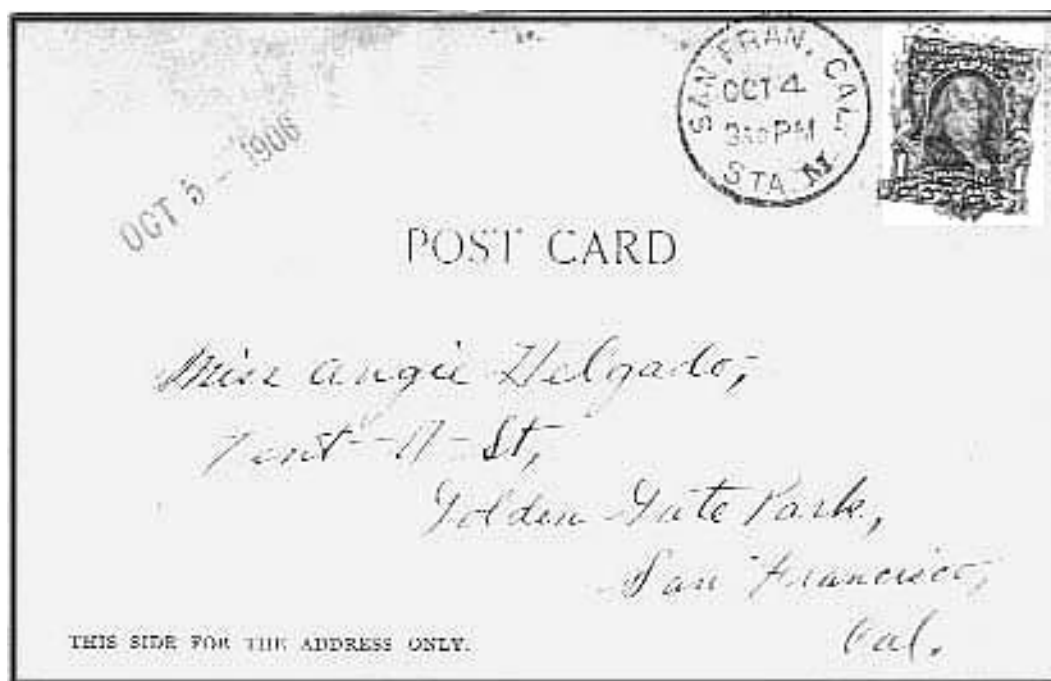 SAN FRAN, CAL.
OCT 4
3 30 PM
STA
OCT 5 - 1906
POST CARD
Miss Angie Delgado,
Tent - A - St,
Golden Gate Park,
San Francisco,
Cal.
THIS SIDE FOR THE ADDRESS ONLY.